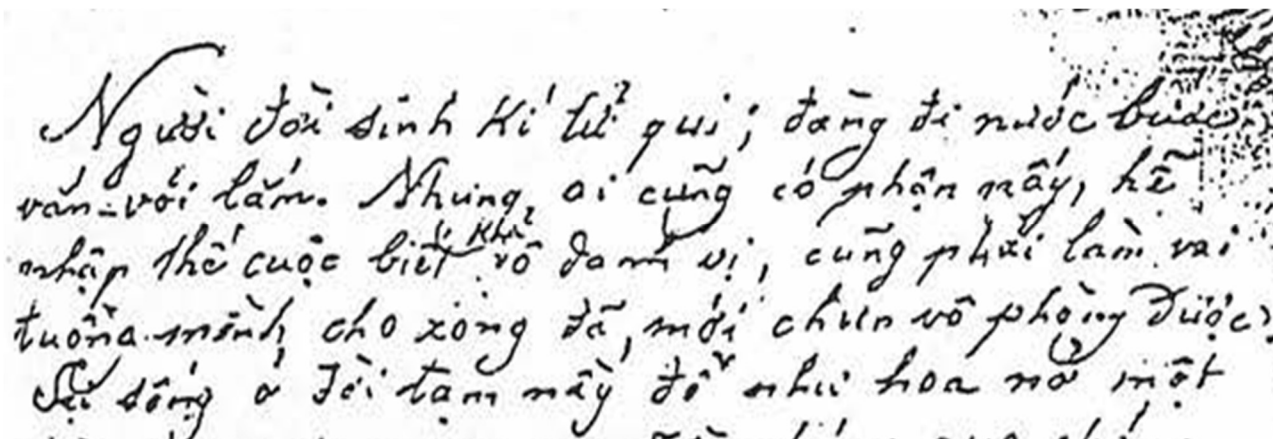 Người đời sinh kí tử qui; đàng đi nước bước
vắn-vỏi lắm. Nhưng, ai cũng có phận nấy, hễ
nhập thế cuộc bất khả vô danh vị, cũng phải làm vai
tuồng mình, cho xong đã, mới chun vô phòng được.
Sự sống ở đời tạm nầy, đỗ như hoa nở một